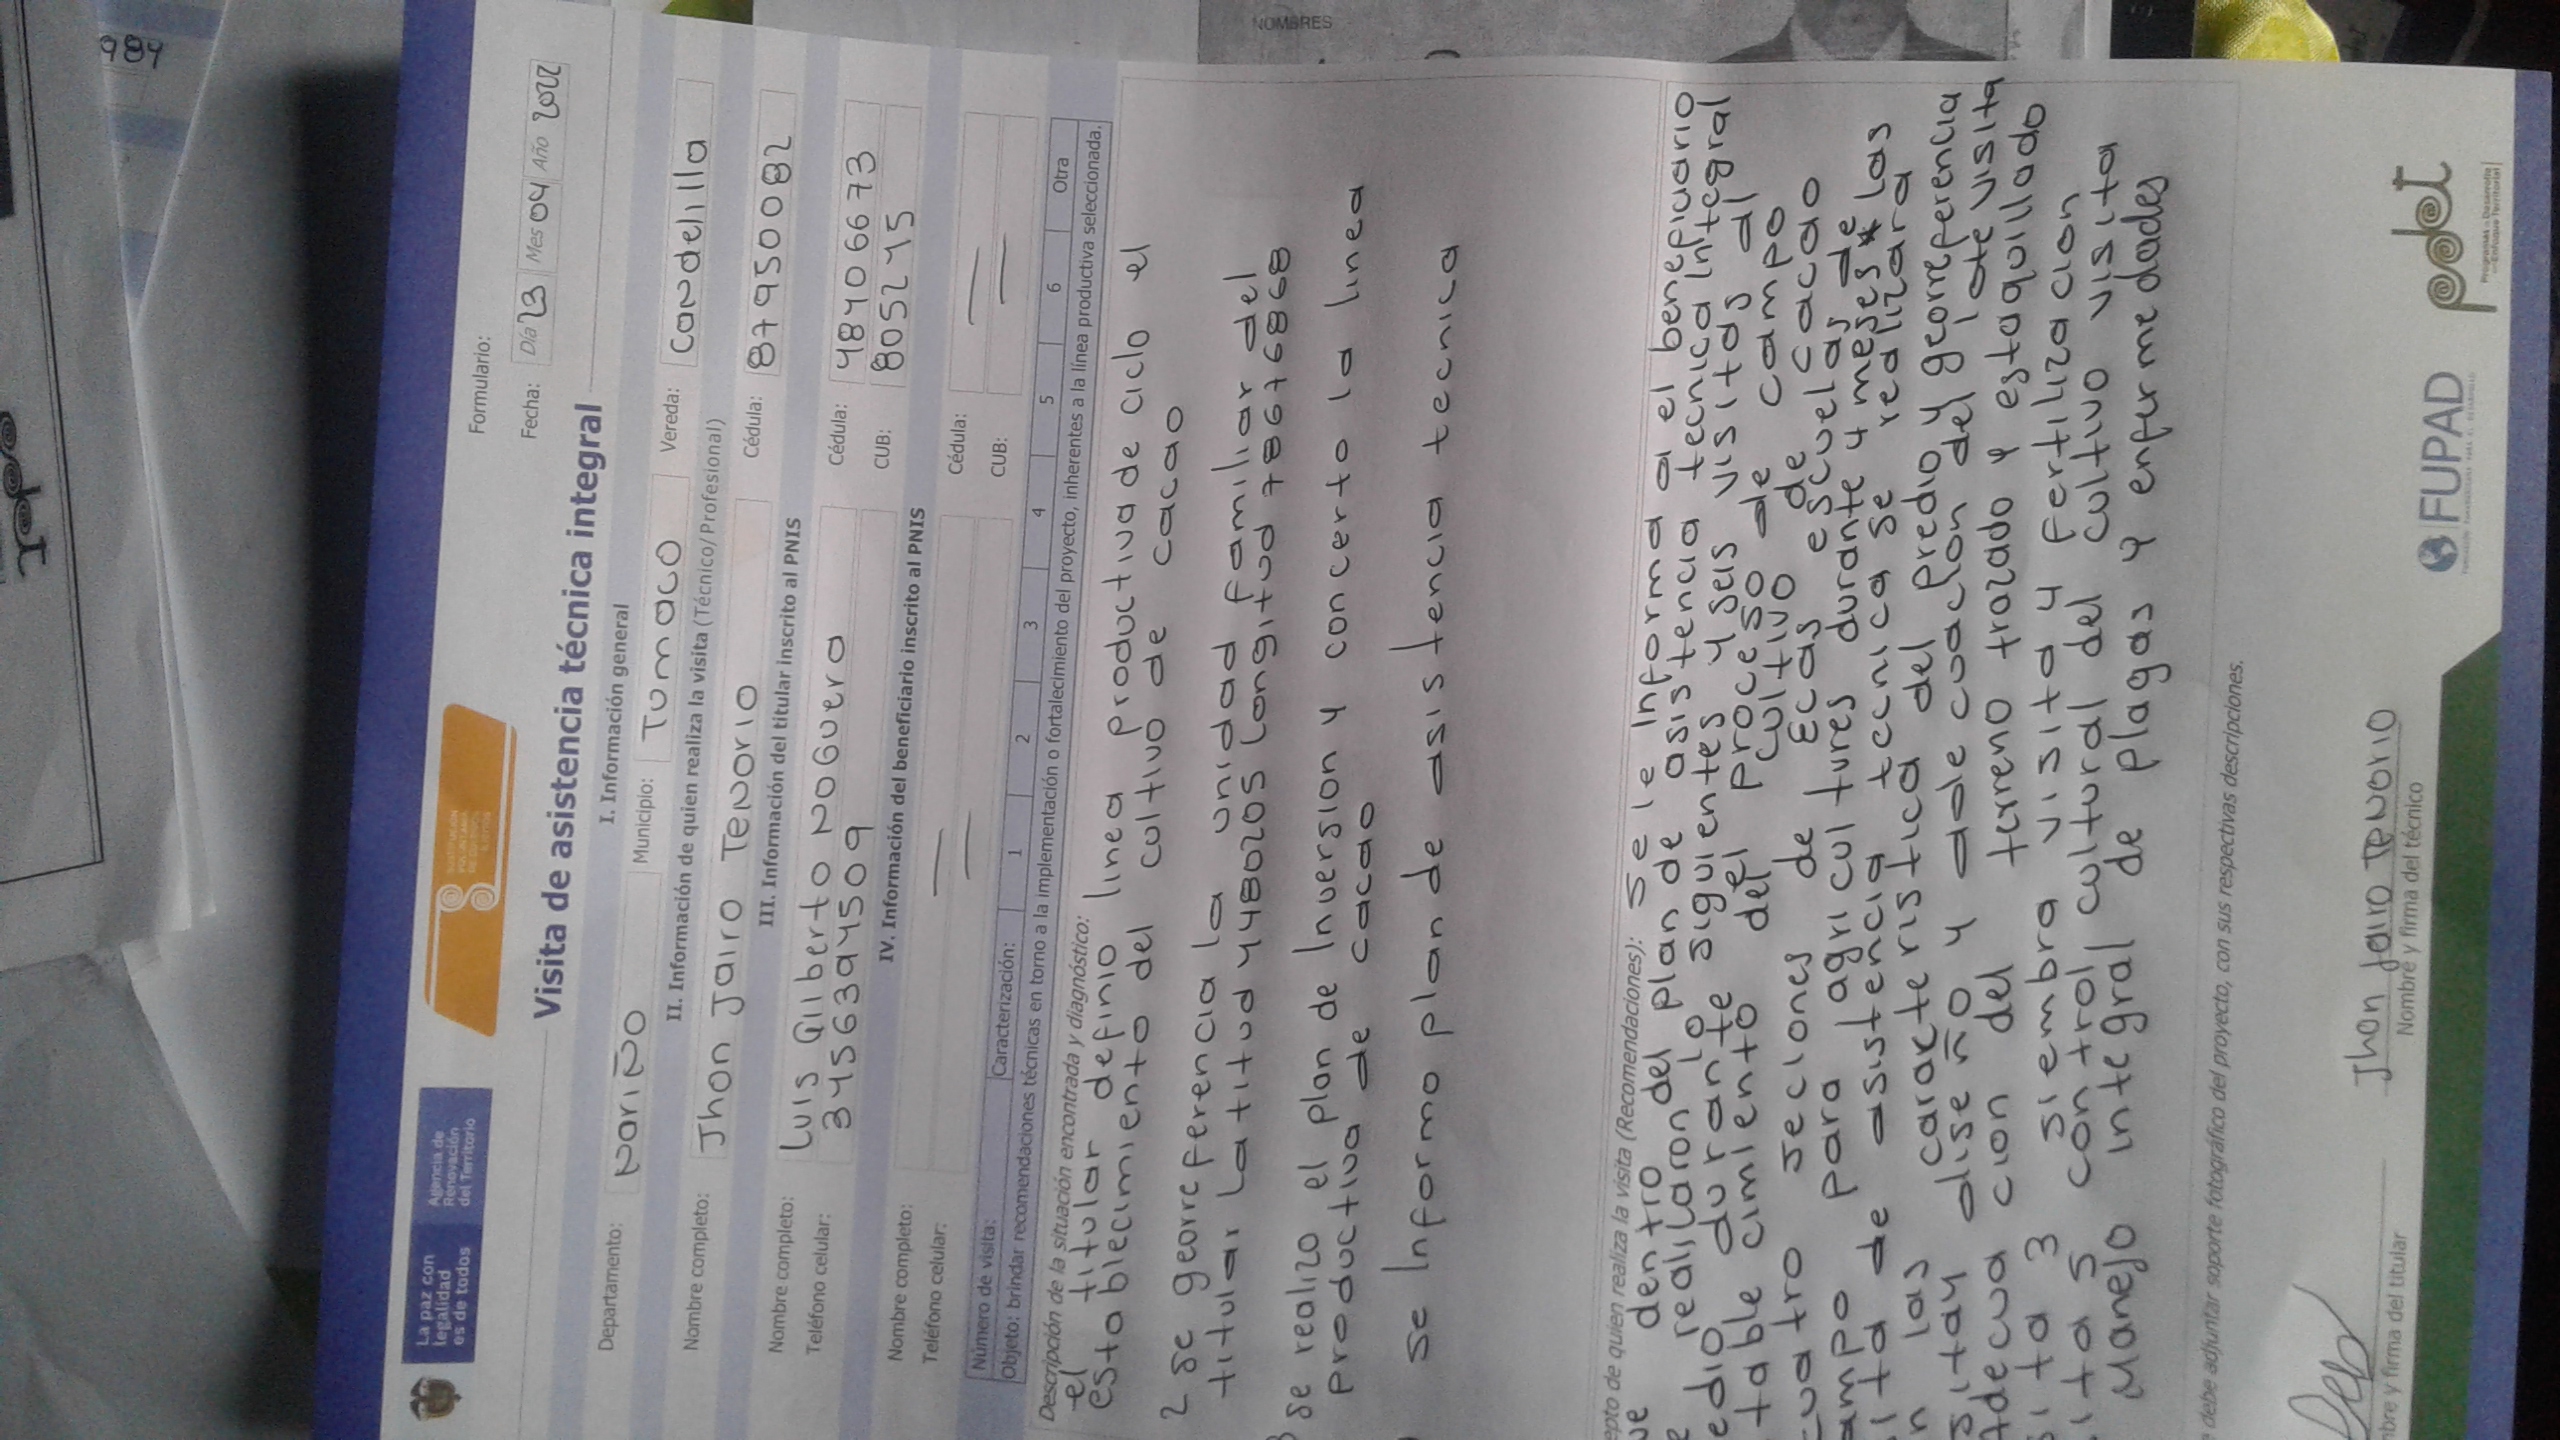 984
NOMBRES
La paz con
legalidad
es de todos
Agencia de
Renovación
del Territorio
Formulario:
Fecha: Día 23 Mes 04 Año 2022
Visita de asistencia técnica integral
I. Información general
Departamento: NariÑO Municipio: Tumaco Vereda: Candelilla
II. Información de quien realiza la visita (Técnico/Profesional)
Nombre completo: Jhon Jairo Tenorio Cédula: 87950082
III. Información del titular inscrito al PNIS
Nombre completo: Luis Gilberto Noguera Cédula: 4840 66 73
Teléfono celular: 3456394509 CUB: 805245
IV. Información del beneficiario inscrito al PNIS
Nombre completo: — Cédula: —
Teléfono celular: — CUB: —
Número de visita: Caracterización: 1 2 3 4 5 6 Otra
Objeto: brindar recomendaciones técnicas en torno a la implementación o fortalecimiento del proyecto, inherentes a la línea productiva seleccionada.
Descripción de la situación encontrada y diagnóstico: linea productiva de ciclo el
el titular definio
establecimiento del cultivo de cacao
2 se georreferencia la unidad familiar del
titular Latitud 4480205 Longitud 78676868
se realizo el plan de Inversion y concerto la linea
productiva de cacao
se Informo plan de asistencia tecnica
de quien realiza la visita (Recomendaciones): se le Informa a el beneficiario
dentro del plan de asistencia tecnica Integral
realilaron lo siguientes y seis visitas al
durante el proceso de campo
table cimiento del cultivo de cacao
cuatro seciones de Ecas escuelas de
para agri cul tures durante 4 meses * las
de asistencia tecnica se realizara
las carakte ristica del predio y georreferencia
diseño y ade cuacion del lote visita
cion del terreno trazado y estaquillado
3 siembra visita 4 fertilizacion
5 control cultural del cultivo visita
Manejo integral de plagas y enfermedades
debe adjuntar soporte fotográfico del proyecto, con sus respectivas descripciones.
Jhon Jairo Tenorio
y firma del titular Nombre y firma del técnico
FUPAD
pdet
Programas de Desarrollo
con Enfoque Territorial